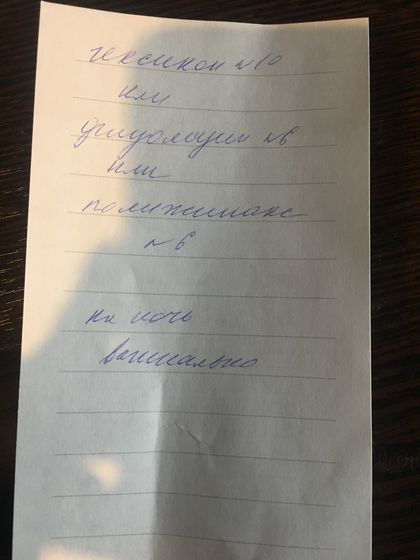 гексикон №10
или
флуомизин №6
или
полижинакс
№6
на ночь
вагинально